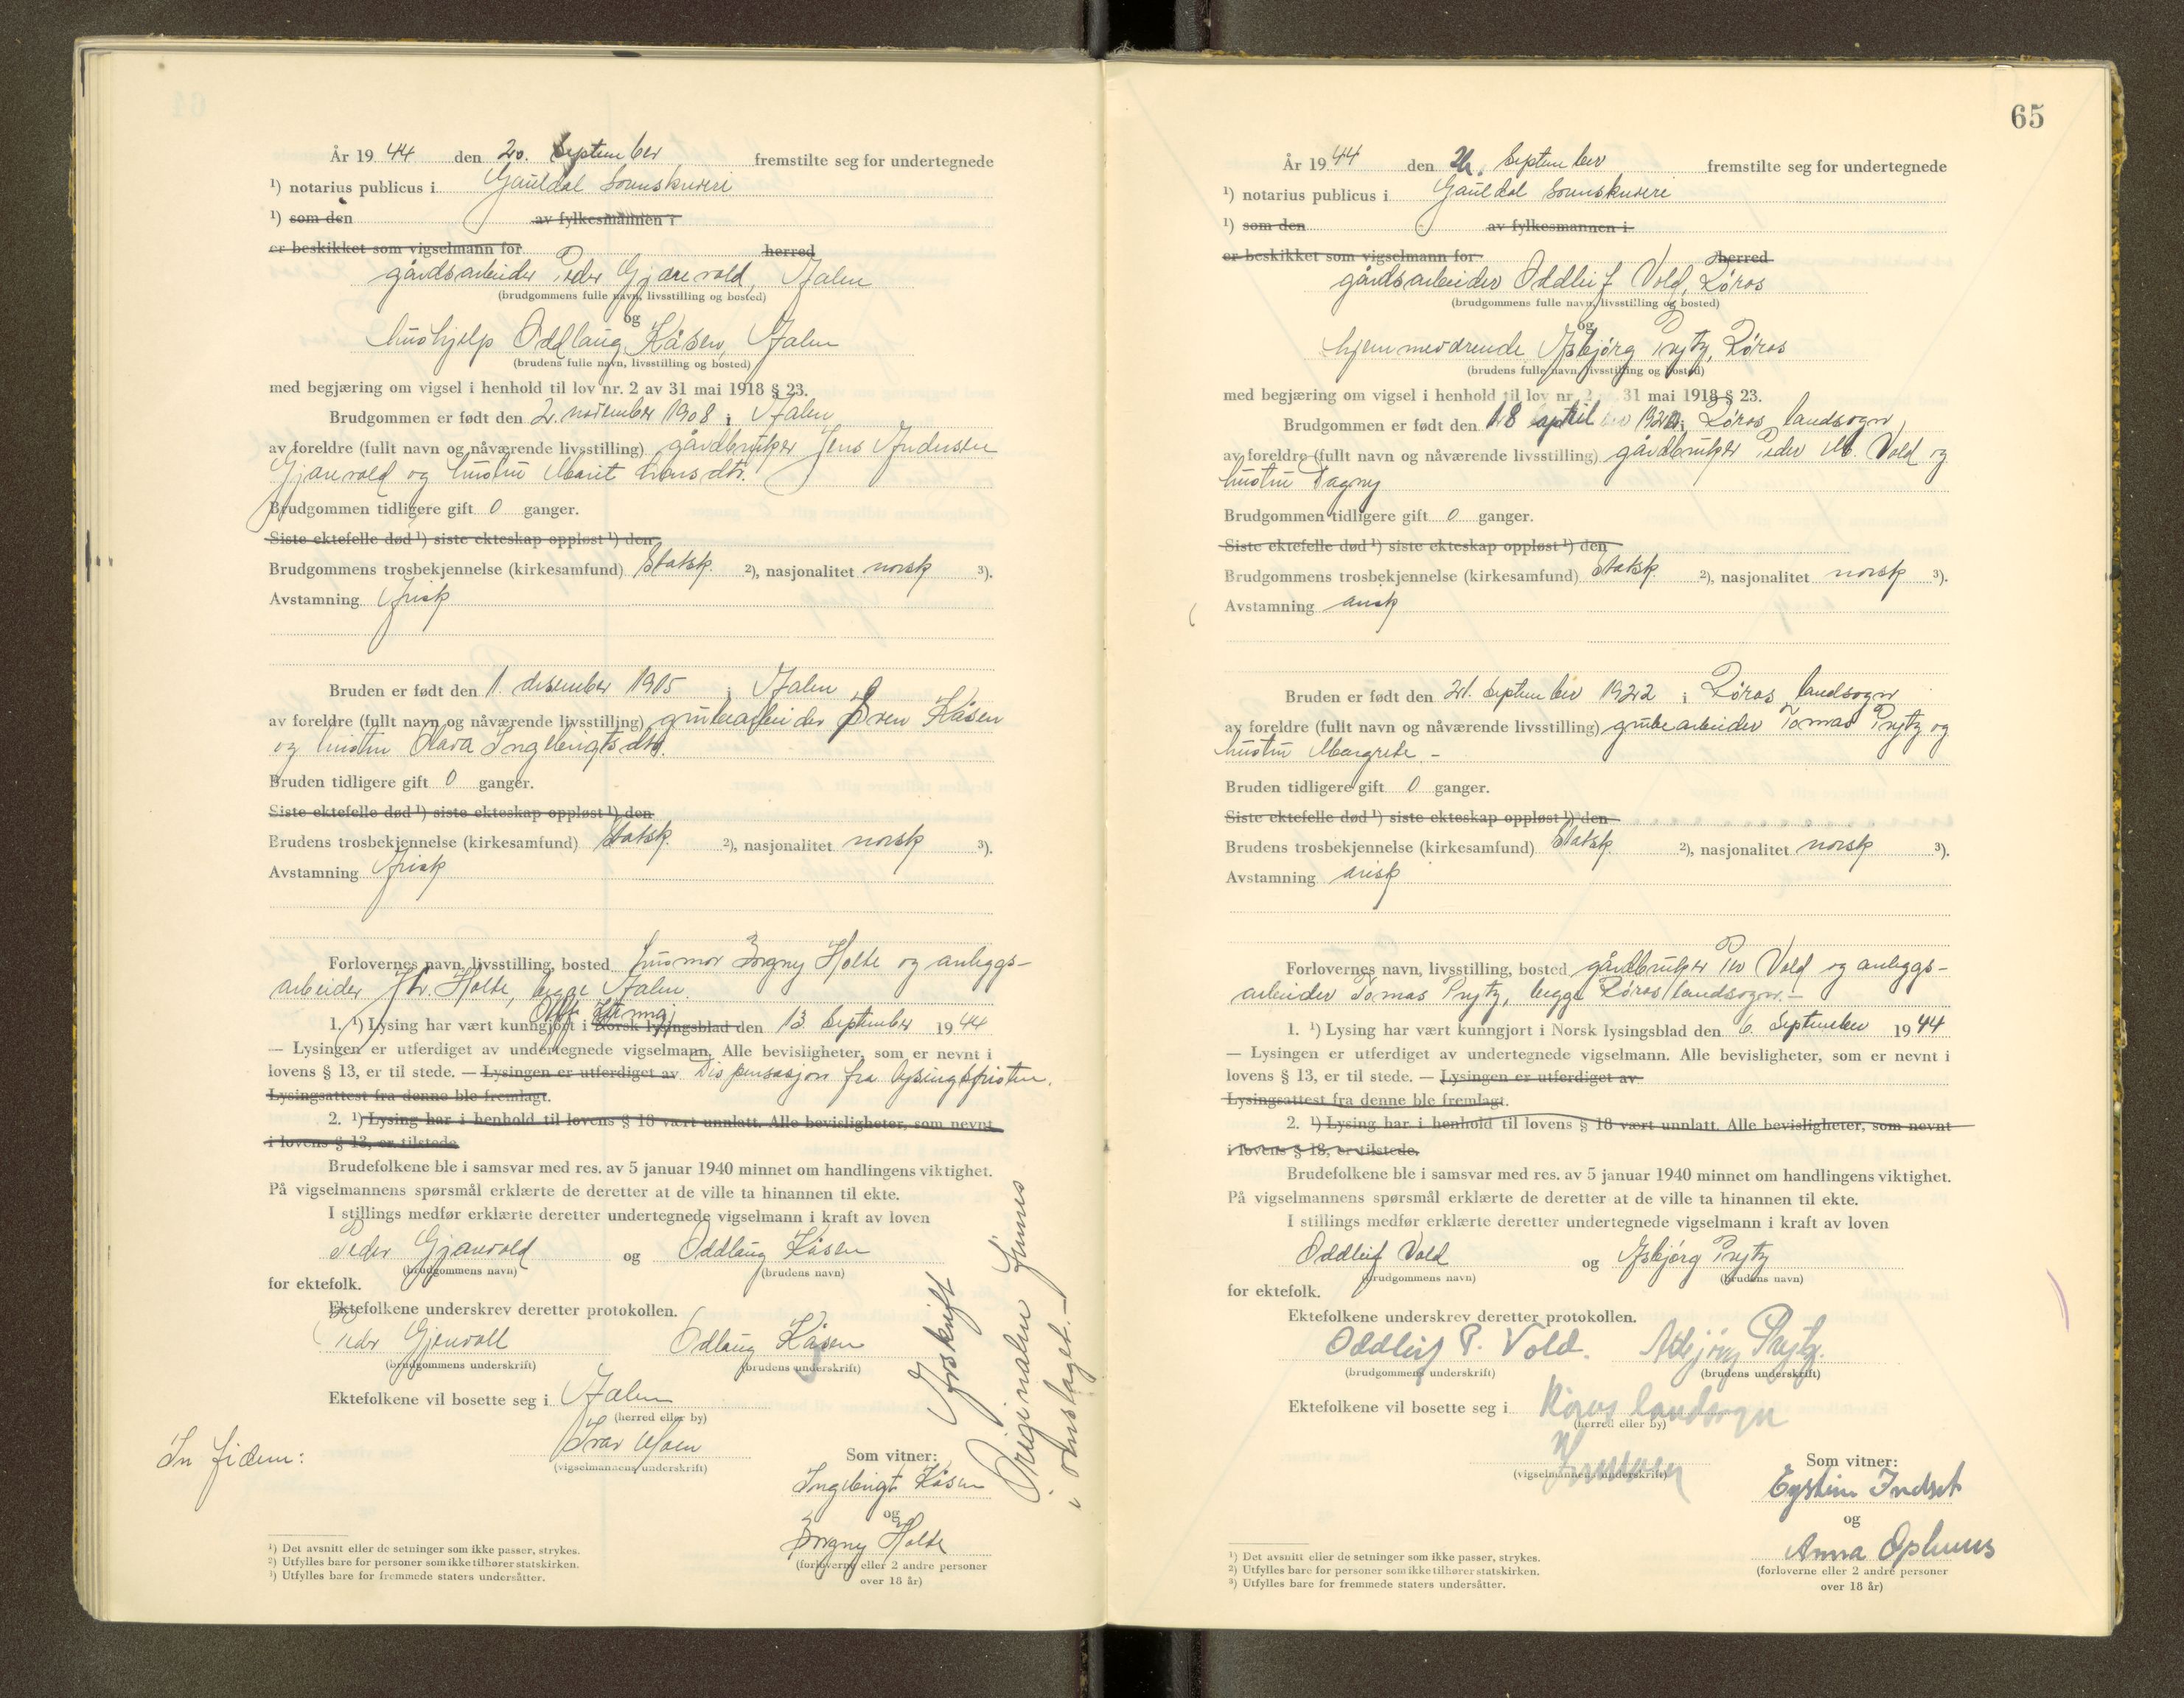 År 19 44 den 20. September fremstilte seg for undertegnede
¹) notarius publicus i Gauldal Sorenskriveri
¹) som den av fylkesmannen i
er beskikket som vigselmann for herred
gårdsarbeider Peder Gjærevold, Ålen
(brudgommens fulle navn, livsstilling og bosted)
og
hushjelp Oddlaug Kåsen, Ålen
(brudens fulle navn, livsstilling og bosted)
med begjæring om vigsel i henhold til lov nr. 2 av 31 mai 1918 § 23.
Brudgommen er født den 2. november 1908 i Ålen
av foreldre (fullt navn og nåværende livsstilling) gårdbruker Jens Andersen
Gjærevold og hustru Marit Hansdtr.
Brudgommen tidligere gift 0 ganger.
Siste ektefelle død ¹) siste ekteskap oppløst ¹) den
Brudgommens trosbekjennelse (kirkesamfund) Statsk. ²), nasjonalitet norsk ³).
Avstamning Arisk
Bruden er født den 1. desember 1915 i Ålen
av foreldre (fullt navn og nåværende livsstilling) grubearbeider Kåsen
og hustru Olava Ingebrigtsdtr.
Bruden tidligere gift 0 ganger.
Siste ektefelle død ¹) siste ekteskap oppløst ¹) den
Brudens trosbekjennelse (kirkesamfund) Statsk. ²), nasjonalitet norsk ³).
Avstamning Arisk
Forlovernes navn, livsstilling, bosted husmor Borgny Holte og anleggs-
arbeider Holte, begge Ålen.
1. ¹) Lysing har vært kunngjort i Norsk lysingsblad den 13. September 19 44
— Lysingen er utferdiget av undertegnede vigselmann. Alle bevisligheter, som er nevnt i
lovens § 13, er til stede. — Lysingen er utferdiget av Dispensasjon fra lysingsfristen.
Lysingsattest fra denne ble fremlagt.
2. ¹) Lysing har i henhold til lovens § 18 vært unnlatt. Alle bevisligheter, som nevnt
i lovens § 13, er tilstede.
Brudefolkene ble i samsvar med res. av 5 januar 1940 minnet om handlingens viktighet.
På vigselmannens spørsmål erklærte de deretter at de ville ta hinannen til ekte.
I stillings medfør erklærte deretter undertegnede vigselmann i kraft av loven
Peder Gjærevold og Oddlaug Kåsen
(brudgommens navn) (brudens navn)
for ektefolk.
Ektefolkene underskrev deretter protokollen.
Peder Gjervoll Odlaug Kåsen
(brudgommens underskrift) (brudens underskrift)
Ektefolkene vil bosette seg i Ålen
(herred eller by)
In fidem: Ivar Moen
(vigselmannens underskrift)
Som vitner:
Ingebrigt Kåsen
og
Borgny Holte
(forloverne eller 2 andre personer
over 18 år)
Avskrift
Originalen finnes
i omslaget.-
¹) Det avsnitt eller de setninger som ikke passer, strykes.
²) Utfylles bare for personer som ikke tilhører statskirken.
³) Utfylles bare for fremmede staters undersåtter.
65
År 19 44 den September fremstilte seg for undertegnede
¹) notarius publicus i Gauldal Sorenskriveri
¹) som den av fylkesmannen i
er beskikket som vigselmann for herred
gårdsarbeider Oddleif Vold, Røros
(brudgommens fulle navn, livsstilling og bosted)
og
hjemmeværende Asbjørg Prytz, Røros
(brudens fulle navn, livsstilling og bosted)
med begjæring om vigsel i henhold til lov nr. 2 31 mai 1918 § 23.
Brudgommen er født den 18 april i Røros landsogn
av foreldre (fullt navn og nåværende livsstilling) gårdbruker Peder M. Vold og
hustru Dagny
Brudgommen tidligere gift 0 ganger.
Siste ektefelle død ¹) siste ekteskap oppløst ¹) den
Brudgommens trosbekjennelse (kirkesamfund) Statsk. ²), nasjonalitet norsk ³).
Avstamning arisk
Bruden er født den 21. September 1922 i Røros landsogn
av foreldre (fullt navn og nåværende livsstilling) grubearbeider Tomas Prytz og
hustru Margrete. -
Bruden tidligere gift 0 ganger.
Siste ektefelle død ¹) siste ekteskap oppløst ¹) den
Brudens trosbekjennelse (kirkesamfund) Statsk. ²), nasjonalitet norsk ³).
Avstamning arisk
Forlovernes navn, livsstilling, bosted gårdbruker Per Vold og anleggs-
arbeider Tomas Prytz, begge Røros landsogn.-
1. ¹) Lysing har vært kunngjort i Norsk lysingsblad den 6. September 19 44
— Lysingen er utferdiget av undertegnede vigselmann. Alle bevisligheter, som er nevnt i
lovens § 13, er til stede. — Lysingen er utferdiget av
Lysingsattest fra denne ble fremlagt.
2. ¹) Lysing har i henhold til lovens § 18 vært unnlatt. Alle bevisligheter, som nevnt
i lovens § 13, er tilstede.
Brudefolkene ble i samsvar med res. av 5 januar 1940 minnet om handlingens viktighet.
På vigselmannens spørsmål erklærte de deretter at de ville ta hinannen til ekte.
I stillings medfør erklærte deretter undertegnede vigselmann i kraft av loven
Oddleif Vold og Asbjørg Prytz
(brudgommens navn) (brudens navn)
for ektefolk.
Ektefolkene underskrev deretter protokollen.
Oddleif P. Vold. Asbjørg Prytz.
(brudgommens underskrift) (brudens underskrift)
Ektefolkene vil bosette seg i Røros landsogn
(herred eller by)
(vigselmannens underskrift)
Som vitner:
Eystein Indset
og
Anna Ophuus
(forloverne eller 2 andre personer
over 18 år)
¹) Det avsnitt eller de setninger som ikke passer, strykes.
²) Utfylles bare for personer som ikke tilhører statskirken.
³) Utfylles bare for fremmede staters undersåtter.